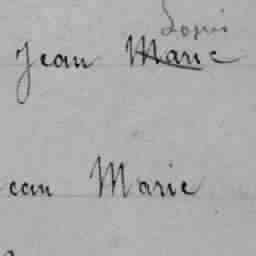 Louis
Jean Marie
ean Marie